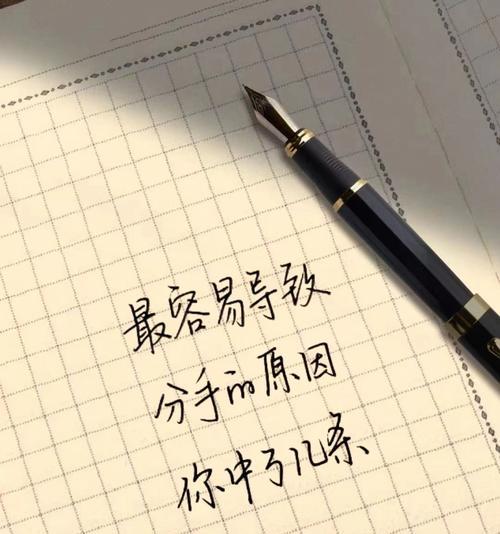 最容易导致
分手的原因
你中了几条